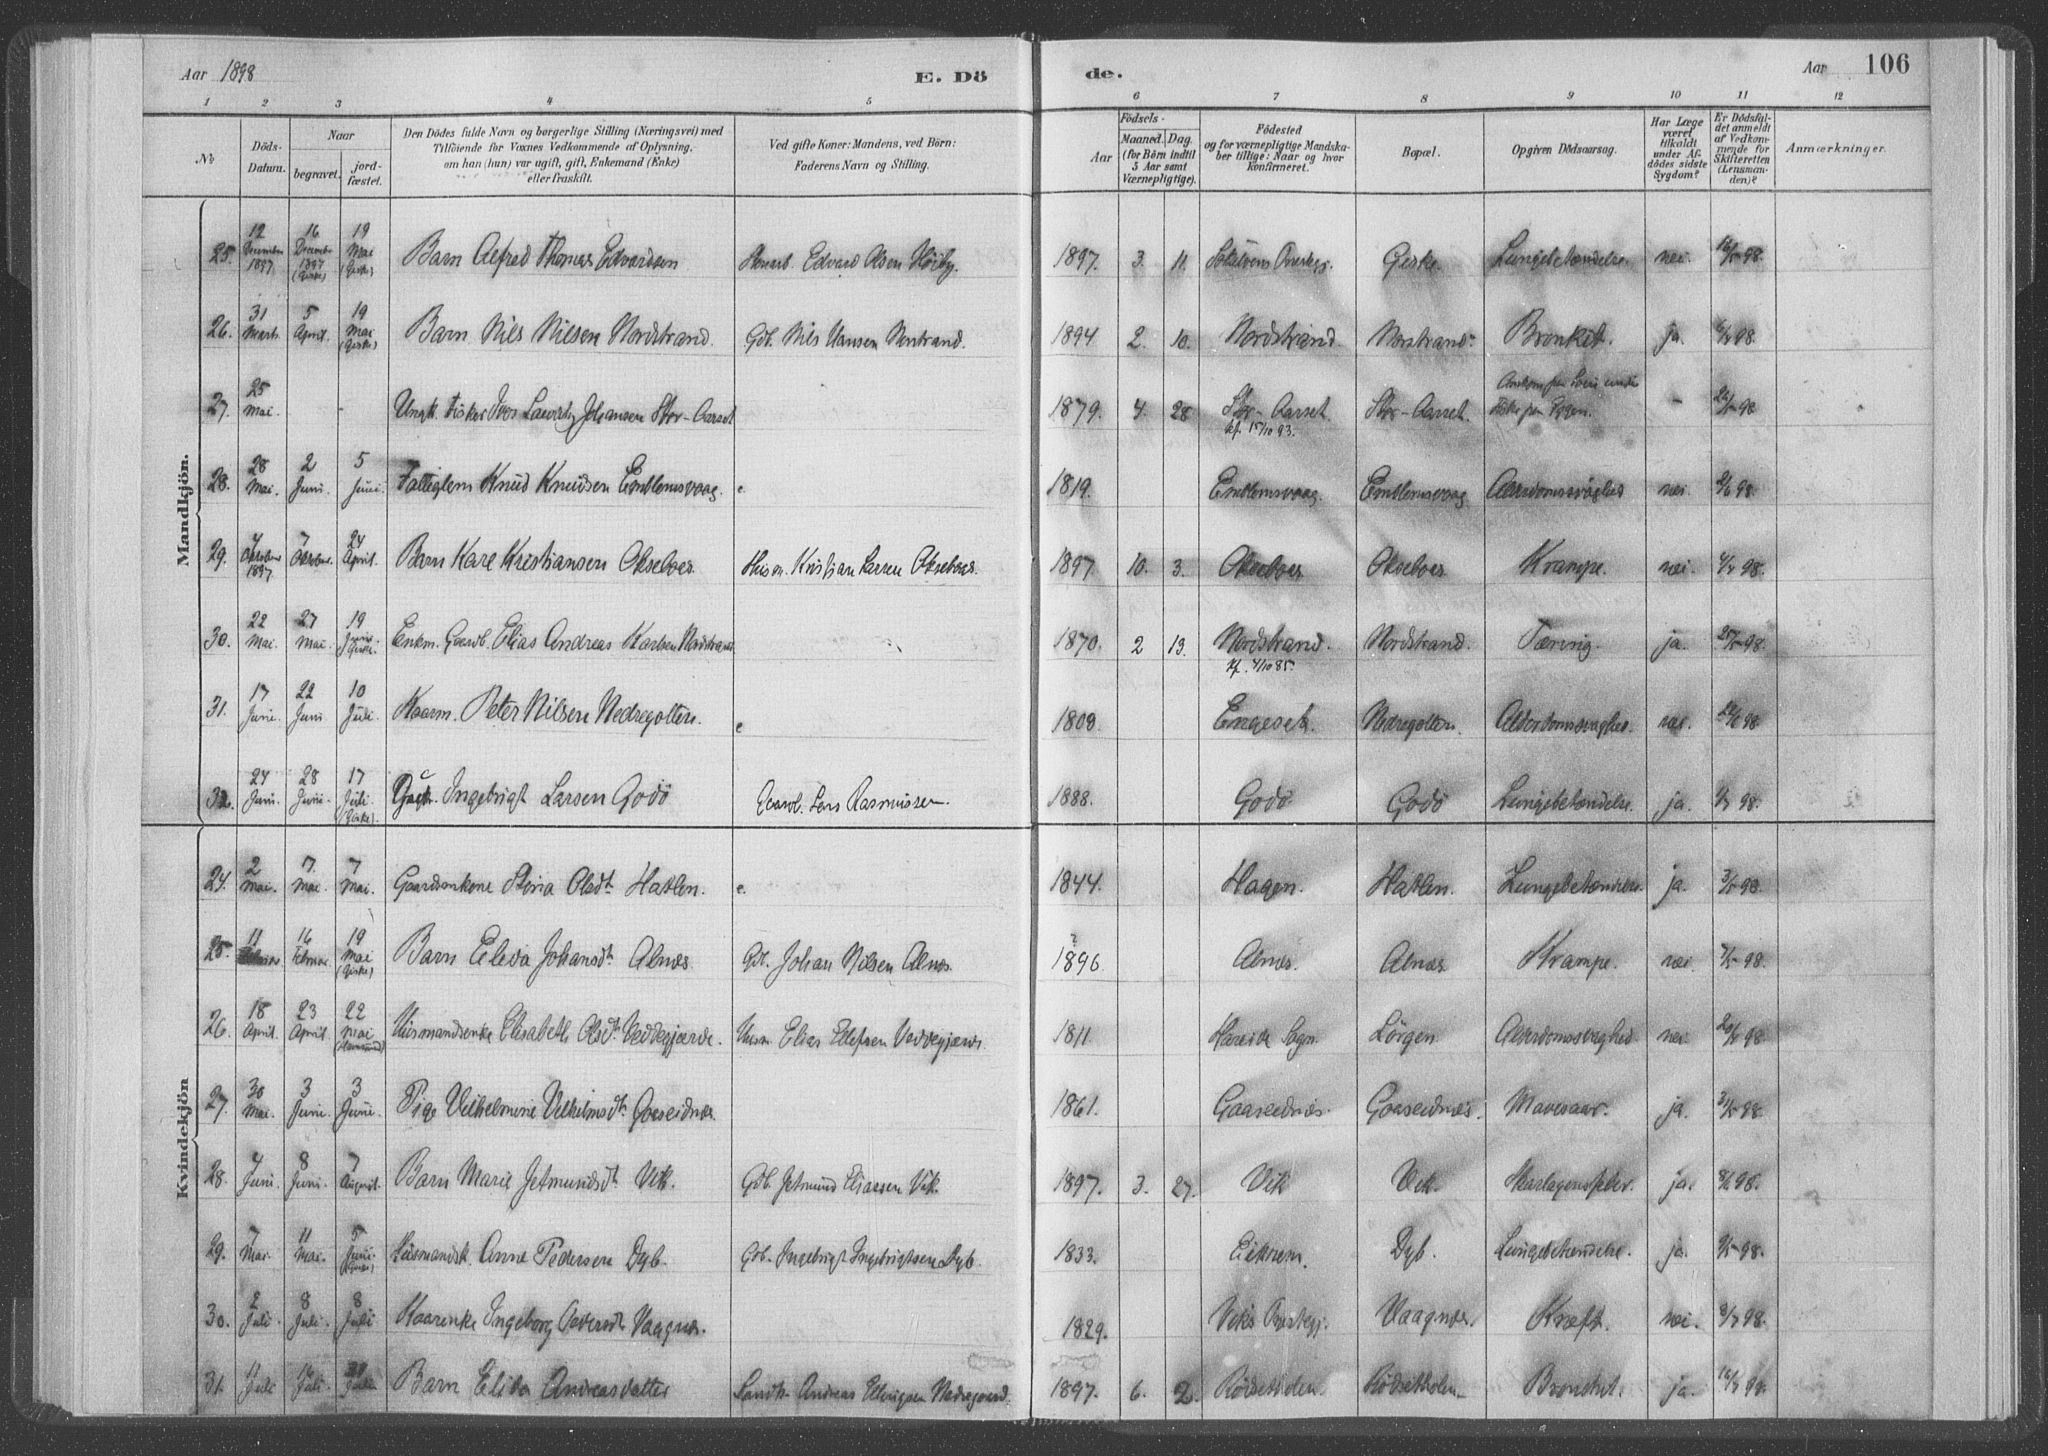 Aar 1898 E. Dö de. Aar 106
1 2 3 4 5 6 7 8 9 10 11 12
No
Döds-Datum.
Naar
begravet.
jord-fæstet.
Den Dödes fulde Navn og borgerlige Stilling (Næringsvei) med
Tilföiende for Voxnes Vedkommende af Oplysning,
om han (hun) var ugift, gift, Enkemand (Enke)
eller fraskilt.
Ved gifte Koner: Mandens, ved Börn:
Faderens Navn og Stilling.
Födsels-
Aar
Maaned. Dag.
(for Börn indtil
5 Aar samt
Værnepligtige).
Födested
og for værnepligtige Mandska-
ber tillige: Naar og hvor
konfirmeret.
Bopæl.
Opgiven Dödsaarsag.
Har Læge
været
tilkaldt
under Af-
dödes sidste
Sygdom?
Er Dödsfal-
det anmeldt
af Vedkom-
mende for
Skifteretten
(Lensman-
den)?
Anmærkninger.
Mandkjön.
25. 12 December 1897 16 December 1897 (Giske) 19 Mai (Giske) Barn Alfred Thomas Edvardsen Edvard Olsen 1897. 3. 11. Giske Lungebetændelse. nei.
26. 31 Marts 5 April. 19 Mai (Giske) Barn Nils Nilsen Nordstrand. Gdb. Nils Hansen Norstrand. 1894 2. 10. Nordstrand. Norstrand. Bronkit. ja.
27. 25 Mai. - Ungk. Fisker Johansen Stor-Aarset 1879. 4. 28. Stor-Aarset. kf. 15/10 93. Stor-Aarset. -
28. 28 Mai. 2 Juni. 5 Juni. Fattiglem Knud Knudsen Emblemsvaag. 1819. Emblemsvaag. Emblemsvaag nei. 2/6 98.
29. 4 Oktober 1897. 7 Oktober. 24 April. Barn Kristiansen Oksebaas Husm. Kristian Larsen 1897. 10. 3. Krampe. nei.
30. 22 Mai. 27 Mai. 19 Juni Giske. Enkm. Gaardb. Elias Andreas Karlsen Nordstrand 1870. 2 13. Nordstrand. kf. 4/10 85. Nordstrand. Tæring. ja.
31. 17 Juni. 22 Juni 10 Juli. Kaarm. Peter Nilsen Nedregotten. 1809. Engeset. Nedregotten. Alderdomssvaghed. nei.
32. 24 Juni. 28 Juni. 17 Juli (Giske). Ingebrigt Larsen Godö Gaardb. Lars Rasmussen 1888. Godö Godö Lungebetændelse. ja.
Kvindekjön
24. 2 Mai. 7 Mai. 7 Mai. Gaardmankone Stina Olsdt. Hatlen. 1844. Haagen. Hatlen. Lungebetændelse. ja. 3/5 98.
25. 11 Februar. 16 Februar 19 Mai (Giske) Barn Elida Johansdt. Alnæs Gdb. Johan Nilsen Alnæs. ? 1896. Alnæs. Alnæs Krampe. nei.
26. 18 April. 23 April. 22 Mai Husmandsenke Elisabeth Olsdt. Veddegjærde. Husm. Elias Ellefsen Veddegjærde. 1811. Hareide Sogn. Lörgen Alderdomssvaghed. nei.
27. 30 Mai. 3 Juni. 3 Juni. Pige Vilhelmine Vilhelmsdt. Gaaseidnæs. 1861. Gaaseidnæs. Gaaseidnæs. Mavesaar. ja.
28. 4 Juni. 8 Juni. 7 August. Barn Marie Jetmundsdt. Vik. Gdb. Jetmund Eliassen Vik. 1897. 3. 27. Vik Vik. Skarlagensfeber. ja. 8/6 98.
29. 7 Mai. 11 Mai. 5 Juni. Husmandsk. Anne Pedersen Dyb. Gdb. Ingebrigt Ingebrigtsen Dyb. 1833. Eikrem. Dyb. Lungebetændelse. ja. 9/5 98.
30. 2 Juli. 8 Juli. 8 Juli Kaarenke Ingeborg Vaagnæs. 1829. Viks Præstegj. Vaagnæs. Kræft. nei. 8/7 98.
31. 11 Juli 16 Juli. Barn Elida Andreasdatter Andreas Nedregaard. 1897. 6. 2. Rödsetholen. Rödsetholen Bronkit. ja. 16/7 98.